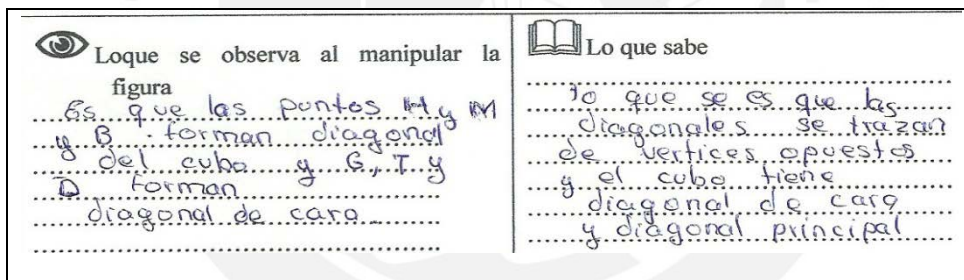 Loque se observa al manipular la
figura
Es que las puntos H y M
y B forman diagonal
del cubo y G, I y
D forman
diagonal de cara
Lo que sabe
lo que se es que las
diagonales se trazan
de vertices opuestos
y el cubo tiene
diagonal de cara
y diagonal principal